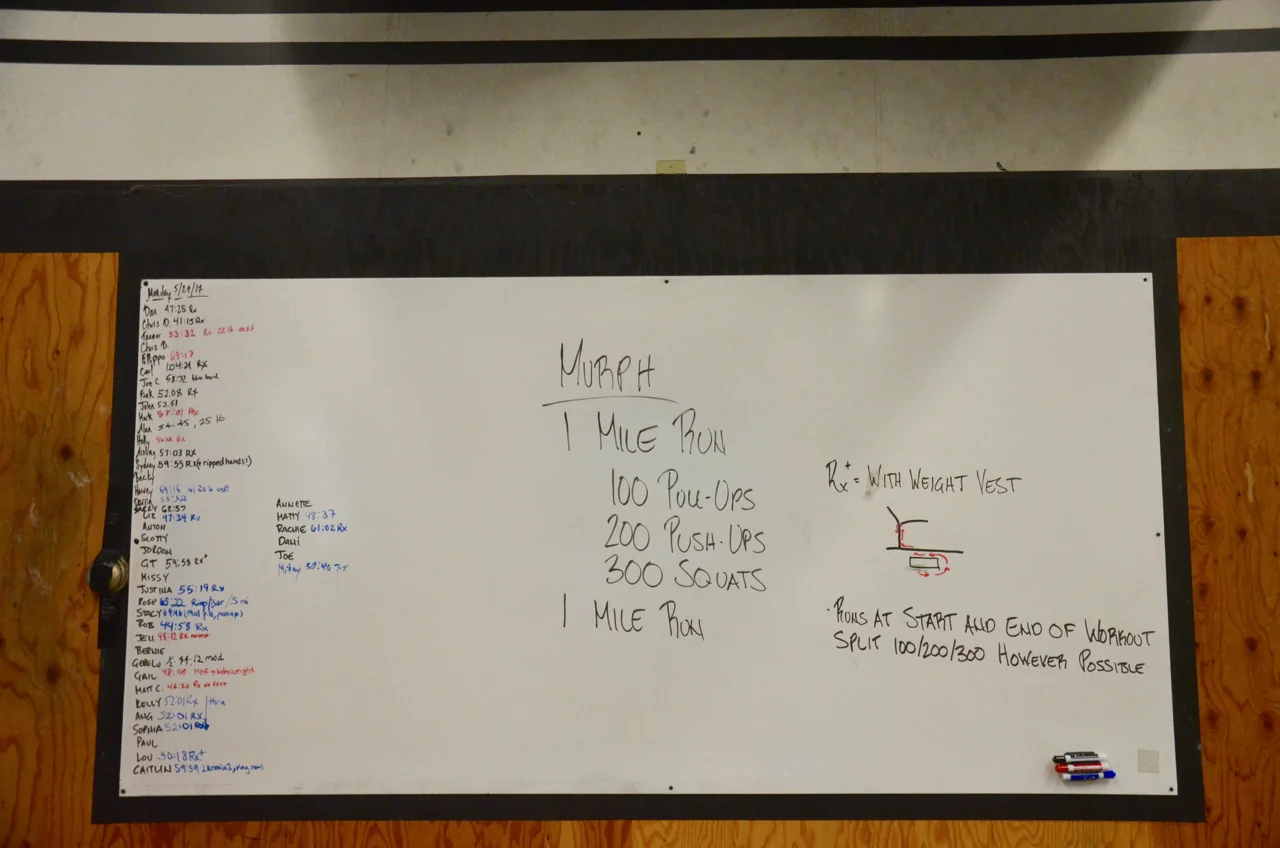 Monday 5/29/17
Dan 47:25 Rx
Chris D. 41:15 Rx
Tanner 53:32 Rx 22 lb vest
Chris B.
Filippo 69:17
Carl 1:04:24 RX
Joe C 58:32 blue band
Park 52:08 RX
John 53:51
Mark 57:01 Rx
Alan 54:45, 25 lb
Holly Rx
Ashley 57:03 RX
Sydney 59:55 Rx (+ ripped hands!)
Becky
Harvey 64:16 w/ 20 lb vest
55:52
62:57
LIZ 47:34 Rx
ANTON
SCOTTY
JORDAN
GT 59:58 RX+
MISSY
JUSTINA 55:19 RX
ROSE 65:22 Ring/bar/.5 mi
STACY 69:46
ROB 44:58 Rx
JEN 48:12 Rx
BERNIE
1/2 44:12 mod
GAIL 48:08 Half +
MATT C. 46:30 Rx no vest
KELLY 52:01 RX
ANG 52:01 RX
SOPHIA 52:01 RX
PAUL
LOU 50:18 Rx+
CAITLIN 59:59
ANNETTE
MATTY 48:37
RACHIE 61:02 Rx
DAMI
JOE
Mikey 50:46
MURPH
1 MILE RUN
100 PULL-UPS
200 PUSH-UPS
300 SQUATS
1 MILE RUN
Rx+ = WITH WEIGHT VEST
· RUNS AT START AND END OF WORKOUT
SPLIT 100/200/300 HOWEVER POSSIBLE